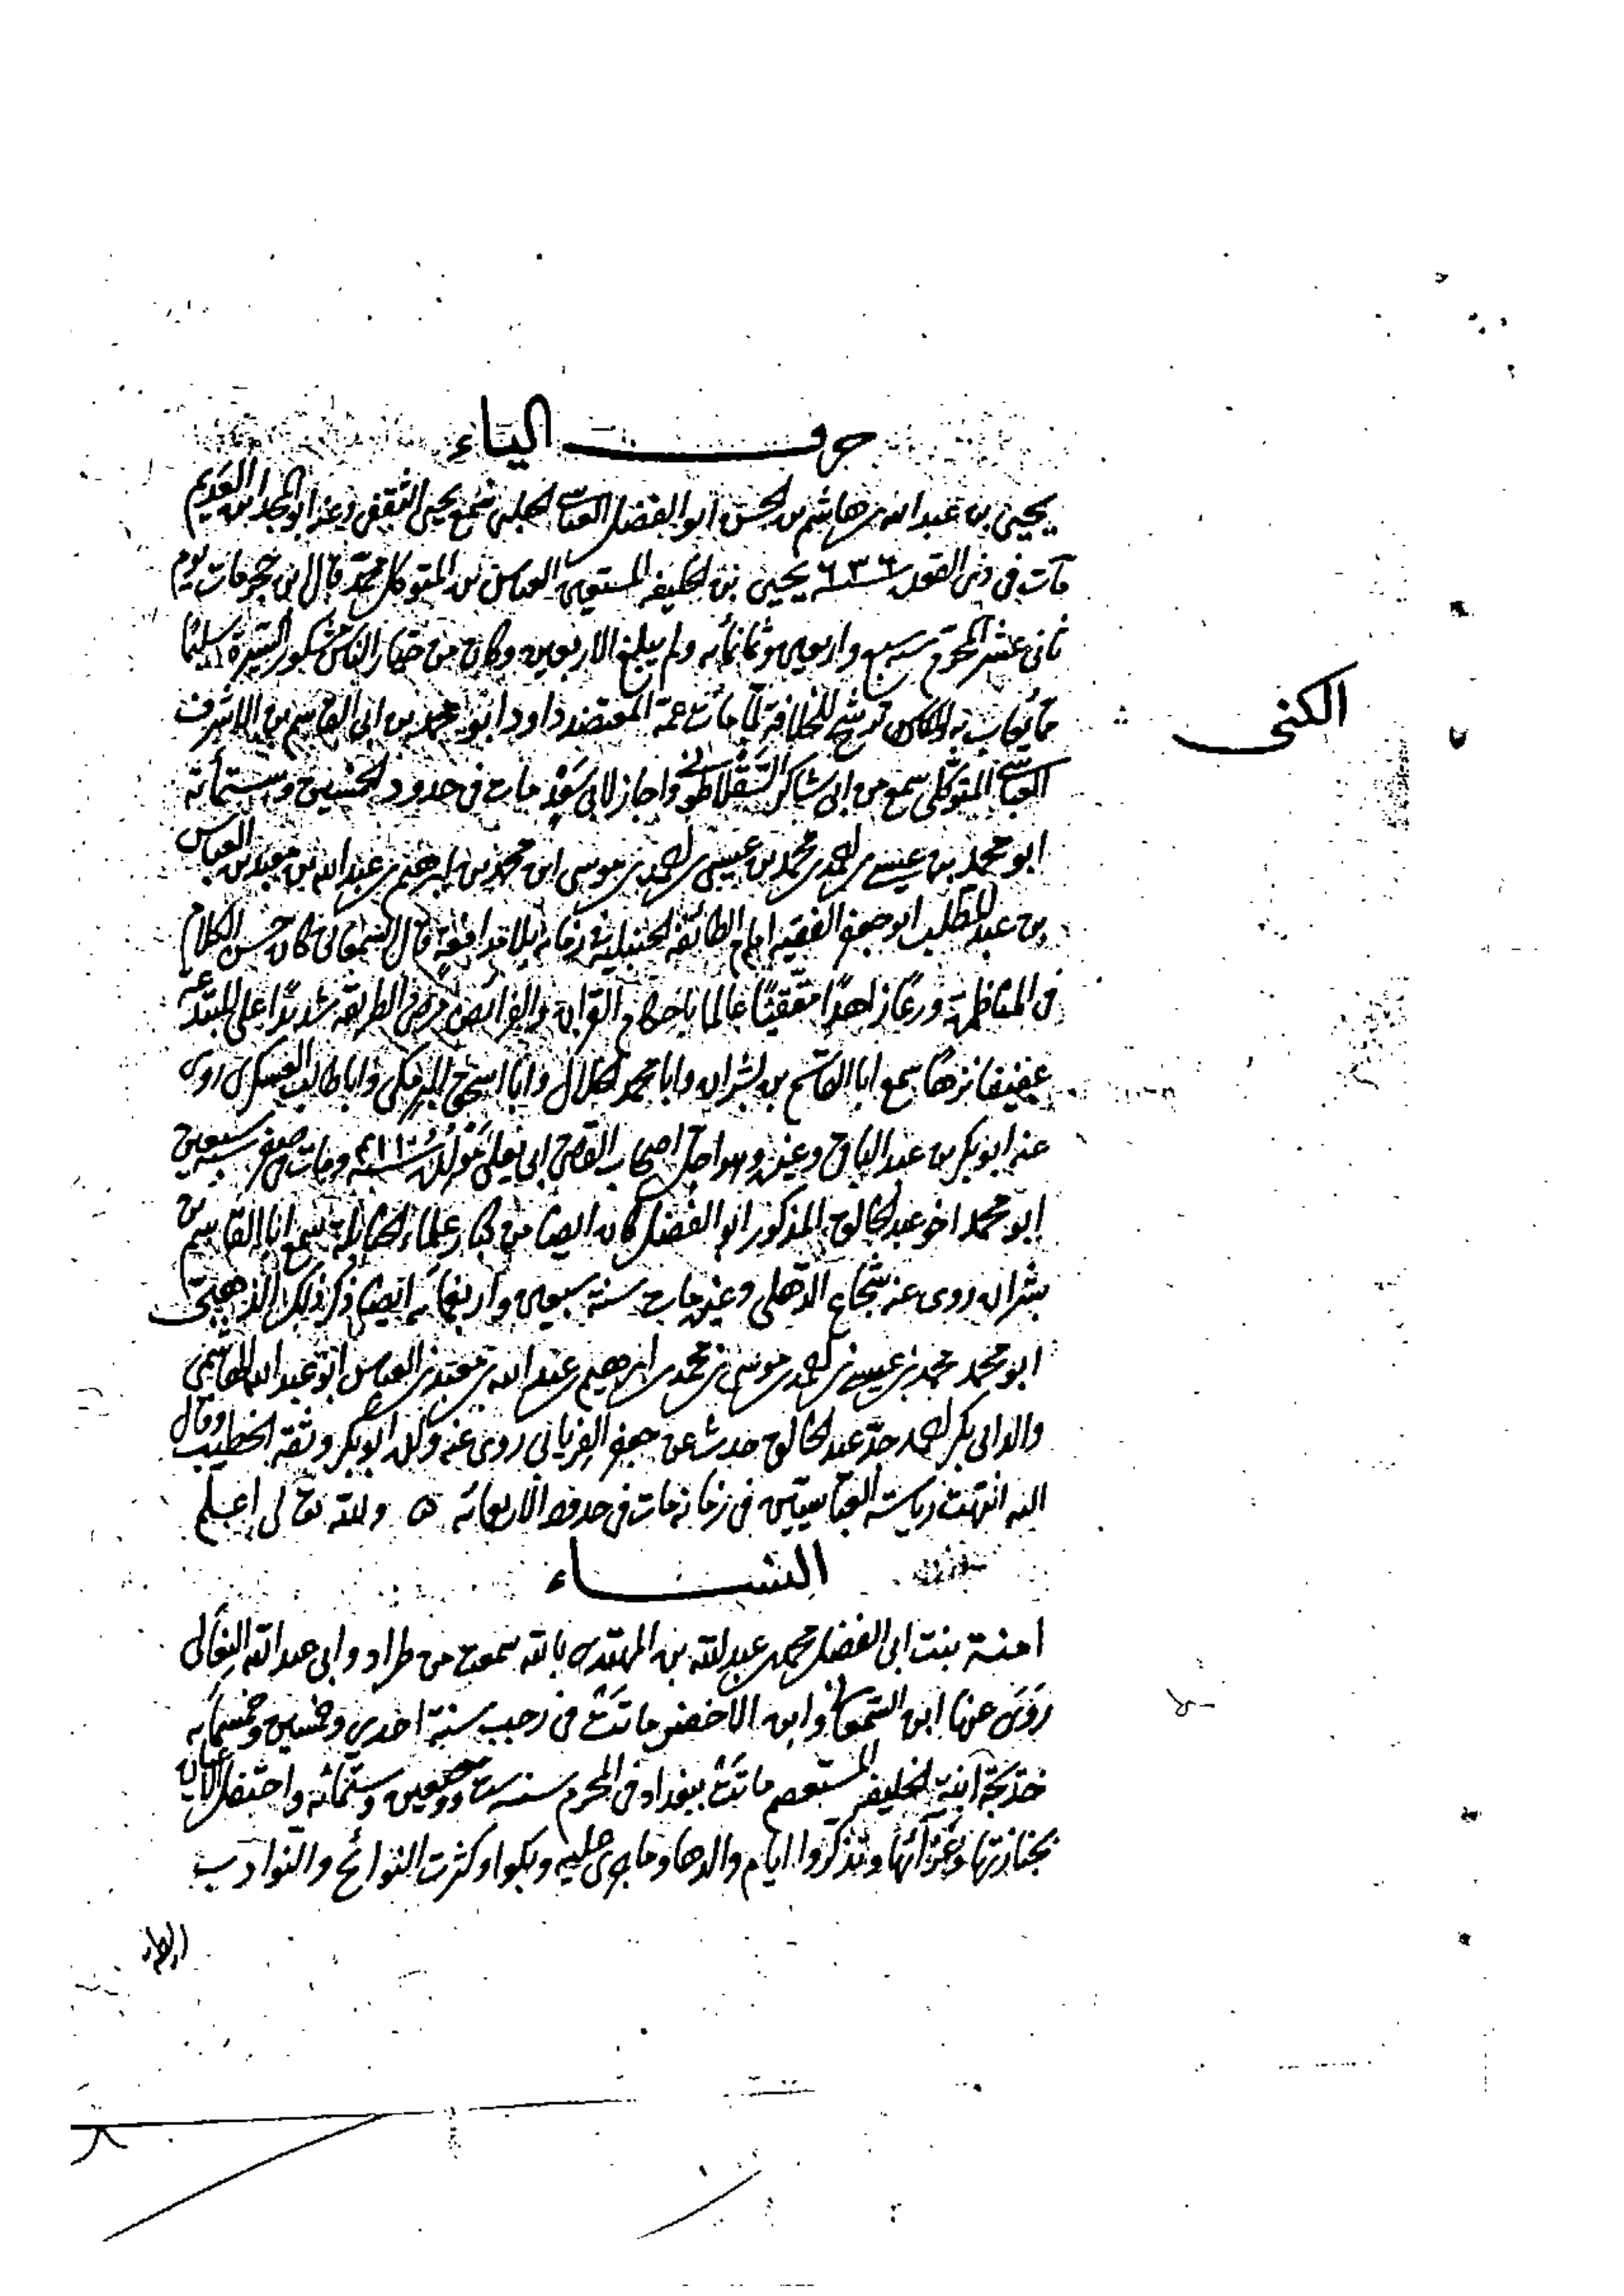 حرف الياء
يحيى بن عبد الله بن هاشم بن الحسن ابو الفضل العباسي الحلبي سمع يحيى الثقفي وعنه ابو المجد ابن العديم
مات في ذي القعدة سنة ٦٣٦ يحيى بن الخليفة المستعين العباس بن المتوكل محمد قال ابن حجر مات يوم
ثاني عشر المحرم سنة سبع واربعين وثمانمائه ولم يبلغ الاربعين وكان من خيار الناس مشكور السيرة سليما
مما يعاب به وكان ترشح للخلافة لما مات عمه المعتضد داود ابو محمد بن ابي القاسم بن الاشرف
الكنى
العباسي المتوكلي سمع من ابي شاكر السقلاطوني واجاز لابي سعد مات في حدود الخمسين وستمائة
ابو محمد بن عيسى بن احمد بن محمد بن عيسى بن احمد بن موسى ابن محمد بن ابرهيم بن عبد الله بن معبد بن العباس
بن عبد المطلب ابو جعفر الفقيه امام الطائفة الحنبلية في زمانه بلا مدافعة قال السمعاني كان حسن الكلام
في المناظرة ورعا زاهدا متقنا عالما باحكام القران والفرائض مرضي الطريقة شديدا على المبتدعة
عفيفا نزها سمع ابا القاسم بن بشران وابا محمد الخلال وابا اسحق البرمكي وابا طالب العسكري روى
عنه ابو بكر بن عبد الباقي وغيره وهو اجل اصحاب القاضي ابي يعلى مولده سنة ٤١١ ومات في صفر سنة سبعين
ابو محمد اخو عبد الخالق المذكور ابو الفضل كان ايضا من كبار علماء الحنابلة سمع ابا القاسم بن
بشران روى عنه شجاع الذهلي وغيره مات سنة سبعين واربعمائه ايضا ذكر ذلك الذهبي
ابو محمد محمد بن عيسى بن احمد بن موسى بن محمد بن ابرهيم بن عبد الله بن معبد بن العباس ابو عبد الله الهاشمي
والد ابي بكر احمد جد عبد الخالق حدث عن جعفر الفريابي روى عنه ولده ابو بكر وثقه الخطيب وقال
اليه انتهت رياسة العباسيين في زمانه مات في حدود الاربعمائه ه والله تعالى اعلم
النساء
امنة بنت ابي الفضل محمد بن عبد لله بن المهتدى بالله سمعت من طراد وابي عبد الله النعالي
روى عنها ابن السمعاني وابن الاخضر ماتت في رجب سنة احدي وخمسين وخمسمائه
خديجة ابنة الخليفه المستعصم ماتت ببغداد في المحرم سنة ست وسبعين وستمائه واحتفل الاعيان
بجنازتها وعزائها وتذكروا ايام والدها وما جرى عليه وبكوا وكثرت النوائح والنوادب